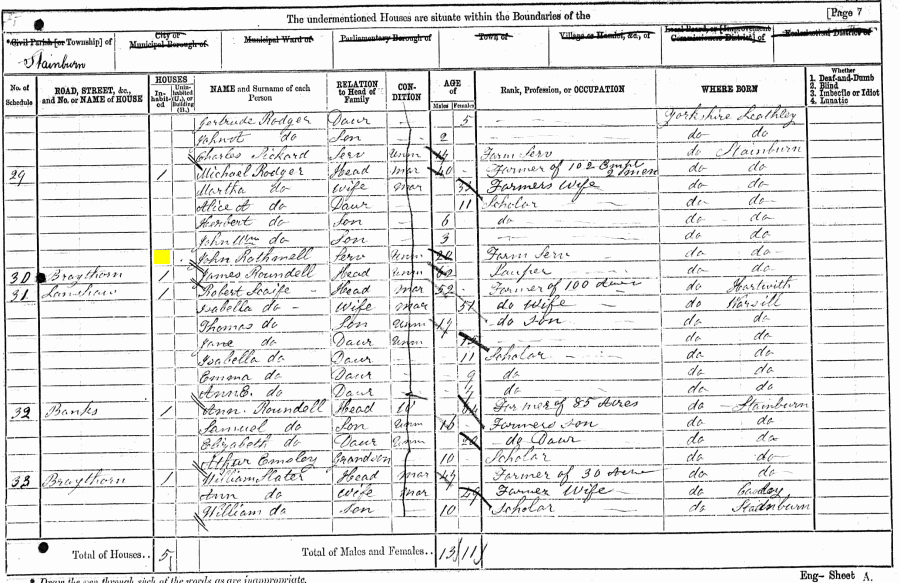 The undermentioned Houses are situate within the Boundaries of the [Page 7
Civil Parish [or Township] of City or Municipal Borough of Municipal Ward of Parliamentary Borough of Town of Village or Hamlet, &c., of Local Board, or [Improvement Commissioners District] of Ecclesiastical District of
Stainburn
No. of Schedule ROAD, STREET, &c., and No. or NAME of HOUSE HOUSES In-habited Unin-habited (U.), or Building (B.) NAME and Surname of each Person RELATION to Head of Family CON-DITION AGE of Males Females Rank, Profession, or OCCUPATION WHERE BORN Whether 1. Deaf-and-Dumb 2. Blind 3. Imbecile or Idiot 4. Lunatic
Gertrude Rodger Daur 5 Yorkshire Leathley
John do Son 2 do do
Charles Pickard Serv Unm Farm Serv do Stainburn
29 1 Michael Rodger Head mar 40 Farmer of 102 Empl 2 men do do
Martha do Wife mar Farmers Wife do do
Alice A do Daur 11 Scholar do do
Herbert do Son 6 do do do
John Wm do Son 3 do do
John Rothmell Serv Unm 20 Farm Serv do do
30 Braythorn 1 James Roundell Head Unm do do
31 1 Robert Scaife Head mar 52 Farmer of 100 do Hartwith
Isabella do Wife mar 51 do Wife do Warsill
Thomas do Son Unm do Son do do
Jane do Daur Unm do do
Isabella do Daur 11 Scholar do do
Emma do Daur 9 do do do
Ann E. do Daur do do do
32 Banks 1 Ann Roundell Head Farmer of 85 Acres do Stainburn
Samuel do Son Unm 16 Farmers son do do
Elizabeth do Daur do Daur do do
Arthur Emsley Grandson 10 Scholar do do
33 Braythorn 1 William Slater Head mar Farmer of 30 Acre do do
Ann do Wife mar 49 Farmer Wife do Castley
William do Son 10 Scholar do Stainburn
Total of Houses.. 5 Total of Males and Females.. 13 11
* Draw the pen through such of the words as are inappropriate. Eng- Sheet A.